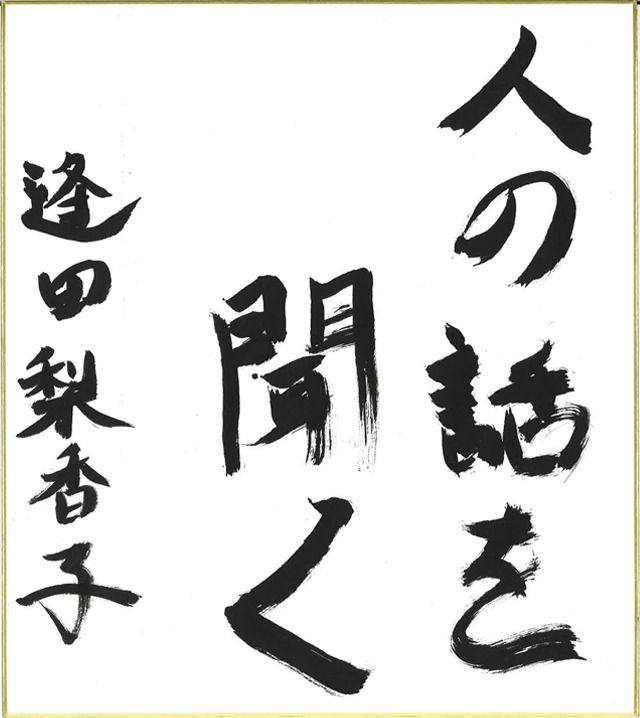 人の話を
聞く
逢田梨香子